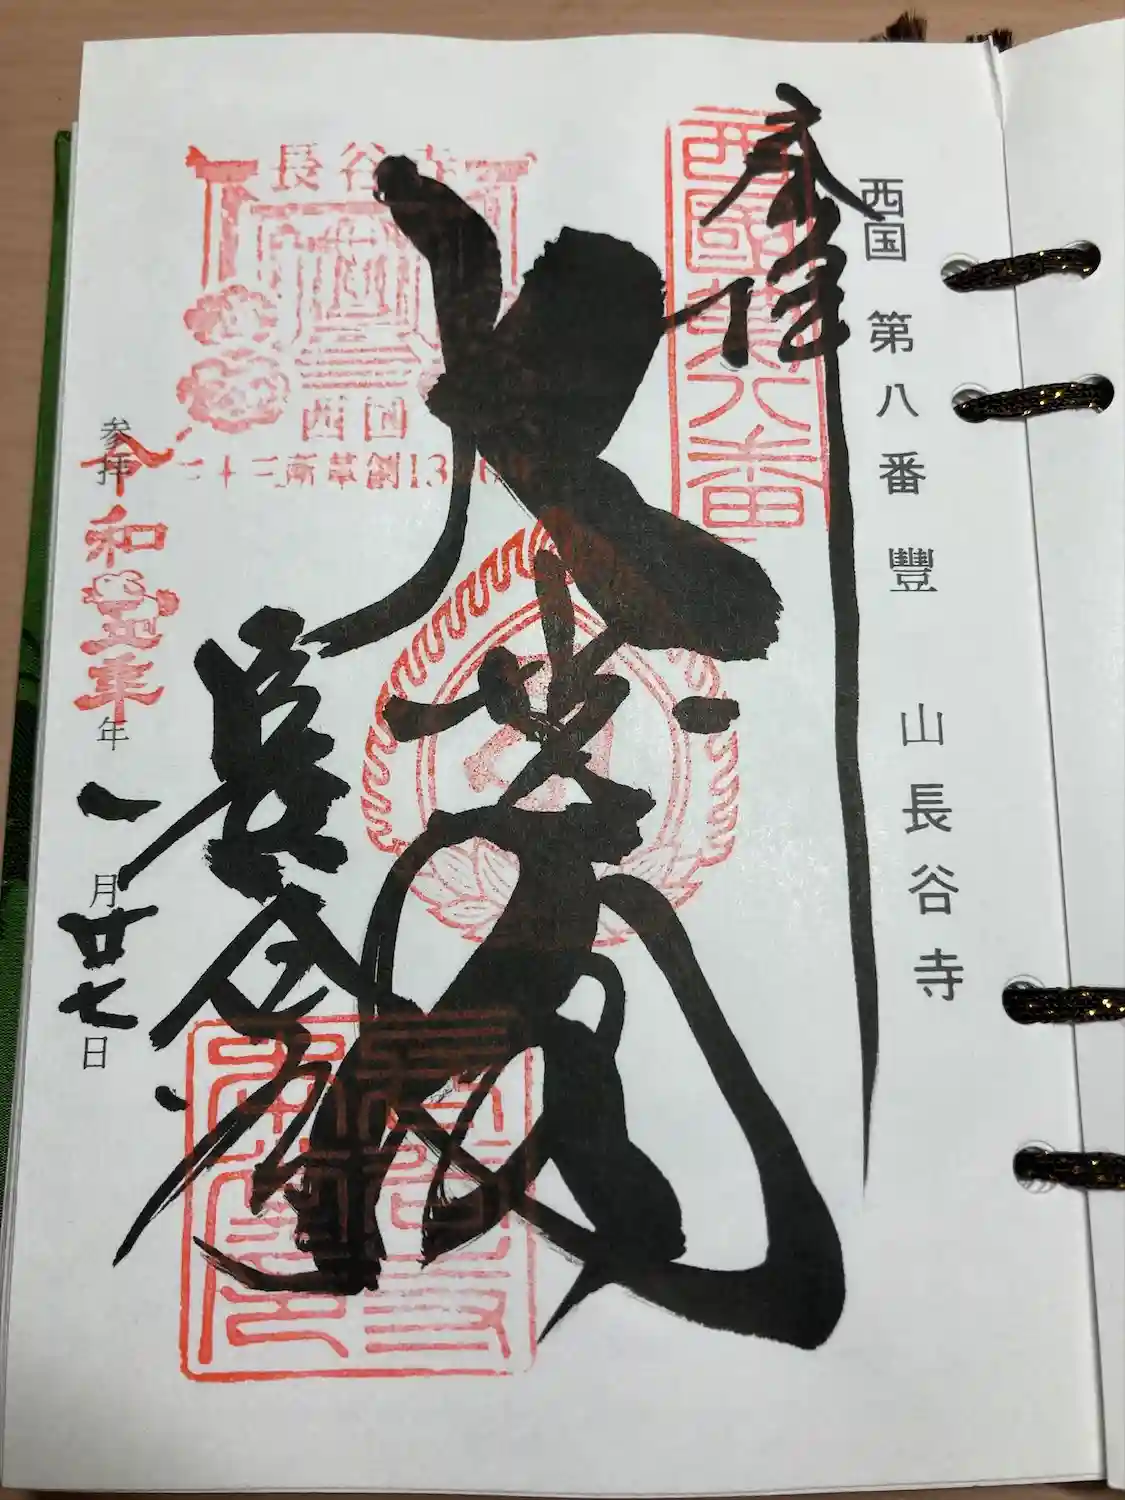 西国 第八番 豐 山長谷寺
奉拝
西國第八番
大悲閣
長谷寺
西国
三十三所草創1300年
長谷寺
参拝 令和五年 年 一 月 廿七 日